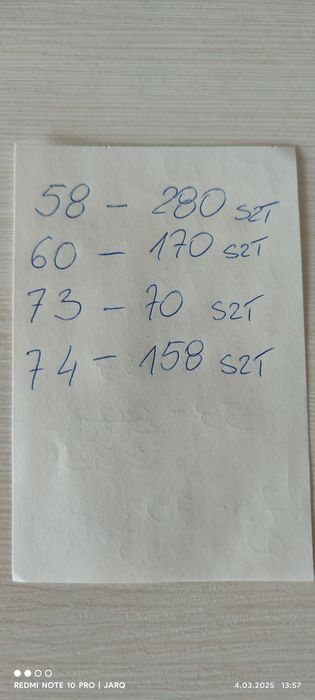 58 - 280 SZT
60 - 170 SZT
73 - 70 SZT
74 - 158 SZT
REDMI NOTE 10 PRO | JARQ
4.03.2025 13:57